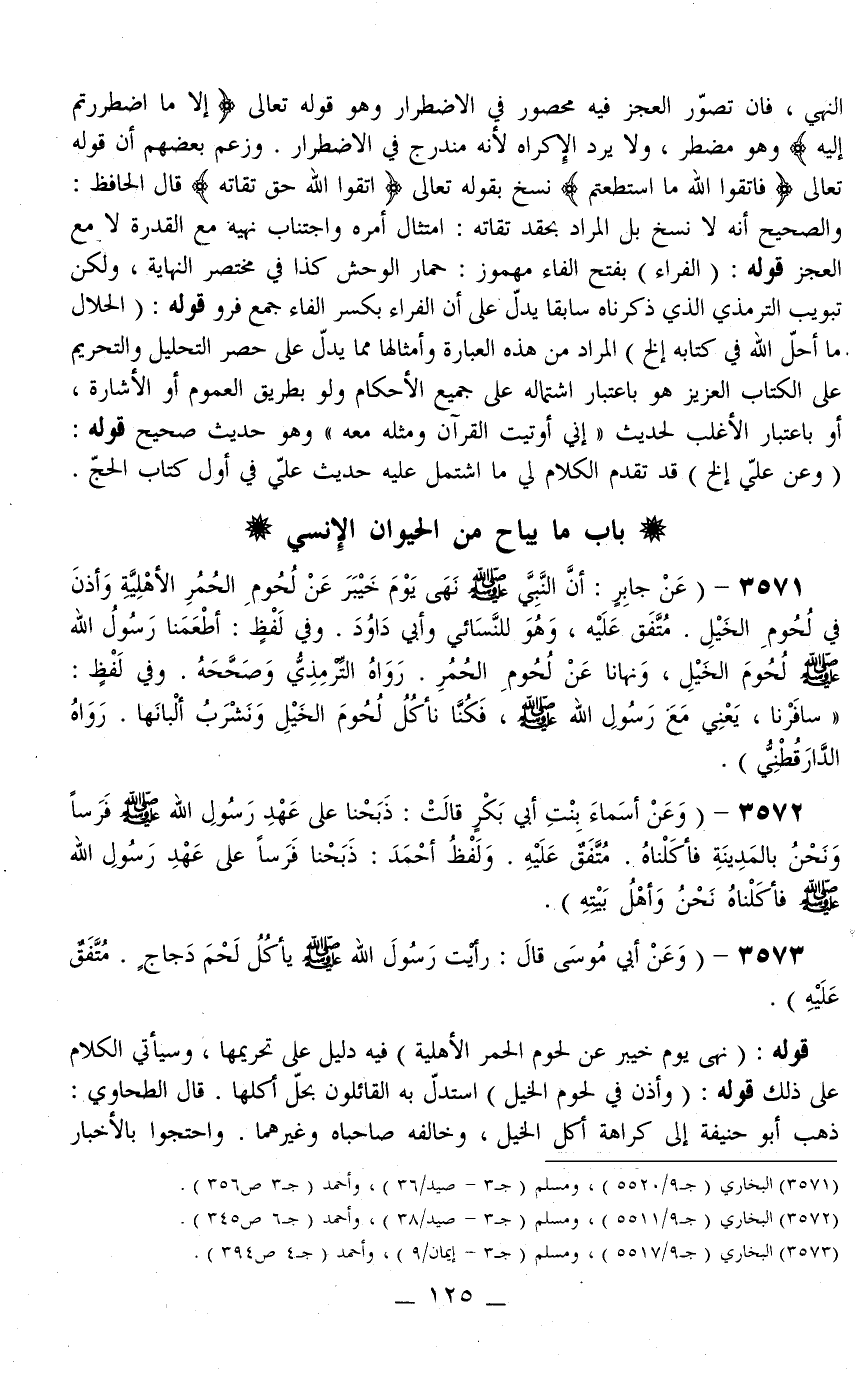 النهي ، فان تصوّر العجز فيه محصور في الاضطرار وهو قوله تعالى ﴿ إلا ما اضطررتم
إليه ﴾ وهو مضطر ، ولا يرد الإكراه لأنه مندرج في الاضطرار . وزعم بعضهم أن قوله
تعالى ﴿ فاتقوا الله ما استطعتم ﴾ نسخ بقوله تعالى ﴿ اتقوا الله حق تقاته ﴾ قال الحافظ :
والصحيح أنه لا نسخ بل المراد بحقد تقاته : امتثال أمره واجتناب نهيه مع القدرة لا مع
العجز قوله : ( الفراء ) بفتح الفاء مهموز : حمار الوحش كذا في مختصر النهاية ، ولكن
تبويب الترمذي الذي ذكرناه سابقا يدلّ على أن الفراء بكسر الفاء جمع فرو قوله : ( الحلال
ما أحلّ الله في كتابه إلخ ) المراد من هذه العبارة وأمثالها مما يدلّ على حصر التحليل والتحريم
على الكتاب العزيز هو باعتبار اشتماله على جميع الأحكام ولو بطريق العموم أو الأشارة ،
أو باعتبار الأغلب لحديث « إني أوتيت القرآن ومثله معه » وهو حديث صحيح قوله :
( وعن عليّ إلخ ) قد تقدم الكلام لي ما اشتمل عليه حديث عليّ في أول كتاب الحجّ .
باب ما يباح من الحيوان الإنسي
٣٥٧١ – ( عَنْ جابِرٍ : أنَّ النَّبِيَّ ﷺ نَهَى يَوْمَ خَيْبَرَ عَنْ لُحُومِ الحُمُرِ الأهْلِيَّةِ وَأذنَ
في لُحُومِ الخَيْلِ . مُتَّفَق عَلَيْه ، وَهُوَ للنَّسَائي وأبي دَاوُدَ . وفي لَفْظٍ : أطْعَمَنا رَسُولُ الله
ﷺ لُحُومَ الخَيْلِ ، وَنهانا عَنْ لُحُومِ الحُمُرِ . رَوَاهُ التِّرْمِذِيُّ وَصَحَّحَهُ . وفي لَفْظٍ :
« سافَرْنا ، يَعْنِي مَعَ رَسُولِ الله ﷺ ، فَكُنَّا نأكُلُ لُحُومَ الخَيْلِ وَنَشْرَبُ ألْبانَها . رَوَاهُ
الدَّارَقُطْنِيُّ ) .
٣٥٧٢ – ( وَعَنْ أسَماءَ بِنْتِ أبي بَكْرٍ قالَتْ : ذَبَحْنا على عَهْدِ رَسُولِ الله ﷺ فَرَساً
وَنَحْنُ بالمَدِينَةِ فأكَلْناهُ . مُتَّفَقٌ عَلَيْهِ . وَلَفْظُ أحْمَدَ : ذَبَحْنا فَرَساً على عَهْدِ رَسُولِ الله
ﷺ فأكَلْناهُ نَحْنُ وَأهْلُ بَيْتِهِ ) .
٣٥٧٣ – ( وَعَنْ أبي مُوسَى قالَ : رأيْت رَسُولَ الله ﷺ يأكُلُ لَحْمَ دَجاجٍ . مُتَّفَقٌ
عَلَيْهِ ) .
قوله : ( نهى يوم خيبر عن لحوم الحمر الأهلية ) فيه دليل على تحريمها ، وسيأتي الكلام
على ذلك قوله : ( وأذن في لحوم الخيل ) استدلّ به القائلون بحلّ أكلها . قال الطحاوي :
ذهب أبو حنيفة إلى كراهة أكل الخيل ، وخالفه صاحباه وغيرهما . واحتجوا بالأخبار
(٣٥٧١) البخاري ( جـ٩/٥٥٢٠ ) ، ومسلم ( جـ٣ – صيد/٣٦ ) ، وأحمد ( جـ٣ ص٣٥٦ ) .
(٣٥٧٢) البخاري ( جـ٩/٥٥١١ ) ، ومسلم ( جـ٣ – صيد/٣٨ ) ، وأحمد ( جـ٦ ص٣٤٥ ) .
(٣٥٧٣) البخاري ( جـ٩/٥٥١٧ ) ، ومسلم ( جـ٣ – إيمان/٩ ) ، وأحمد ( جـ٤ ص٣٩٤ ) .
_ ١٢٥ _